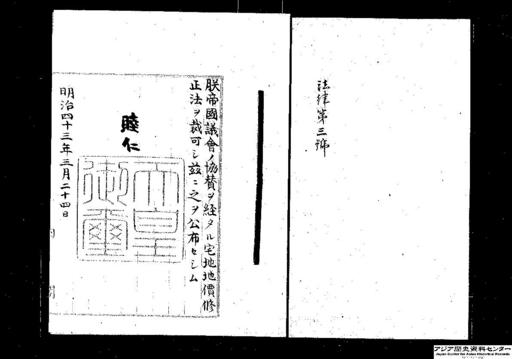 法律第三號
朕帝國議會ノ協贊ヲ經タル宅地地價修
正法ヲ裁可シ茲ニ之ヲ公布セシム
睦仁
天皇
御璽
明治四十三年三月二十四日
アジア歴史資料センター
Japan Center for Asian Historical Records